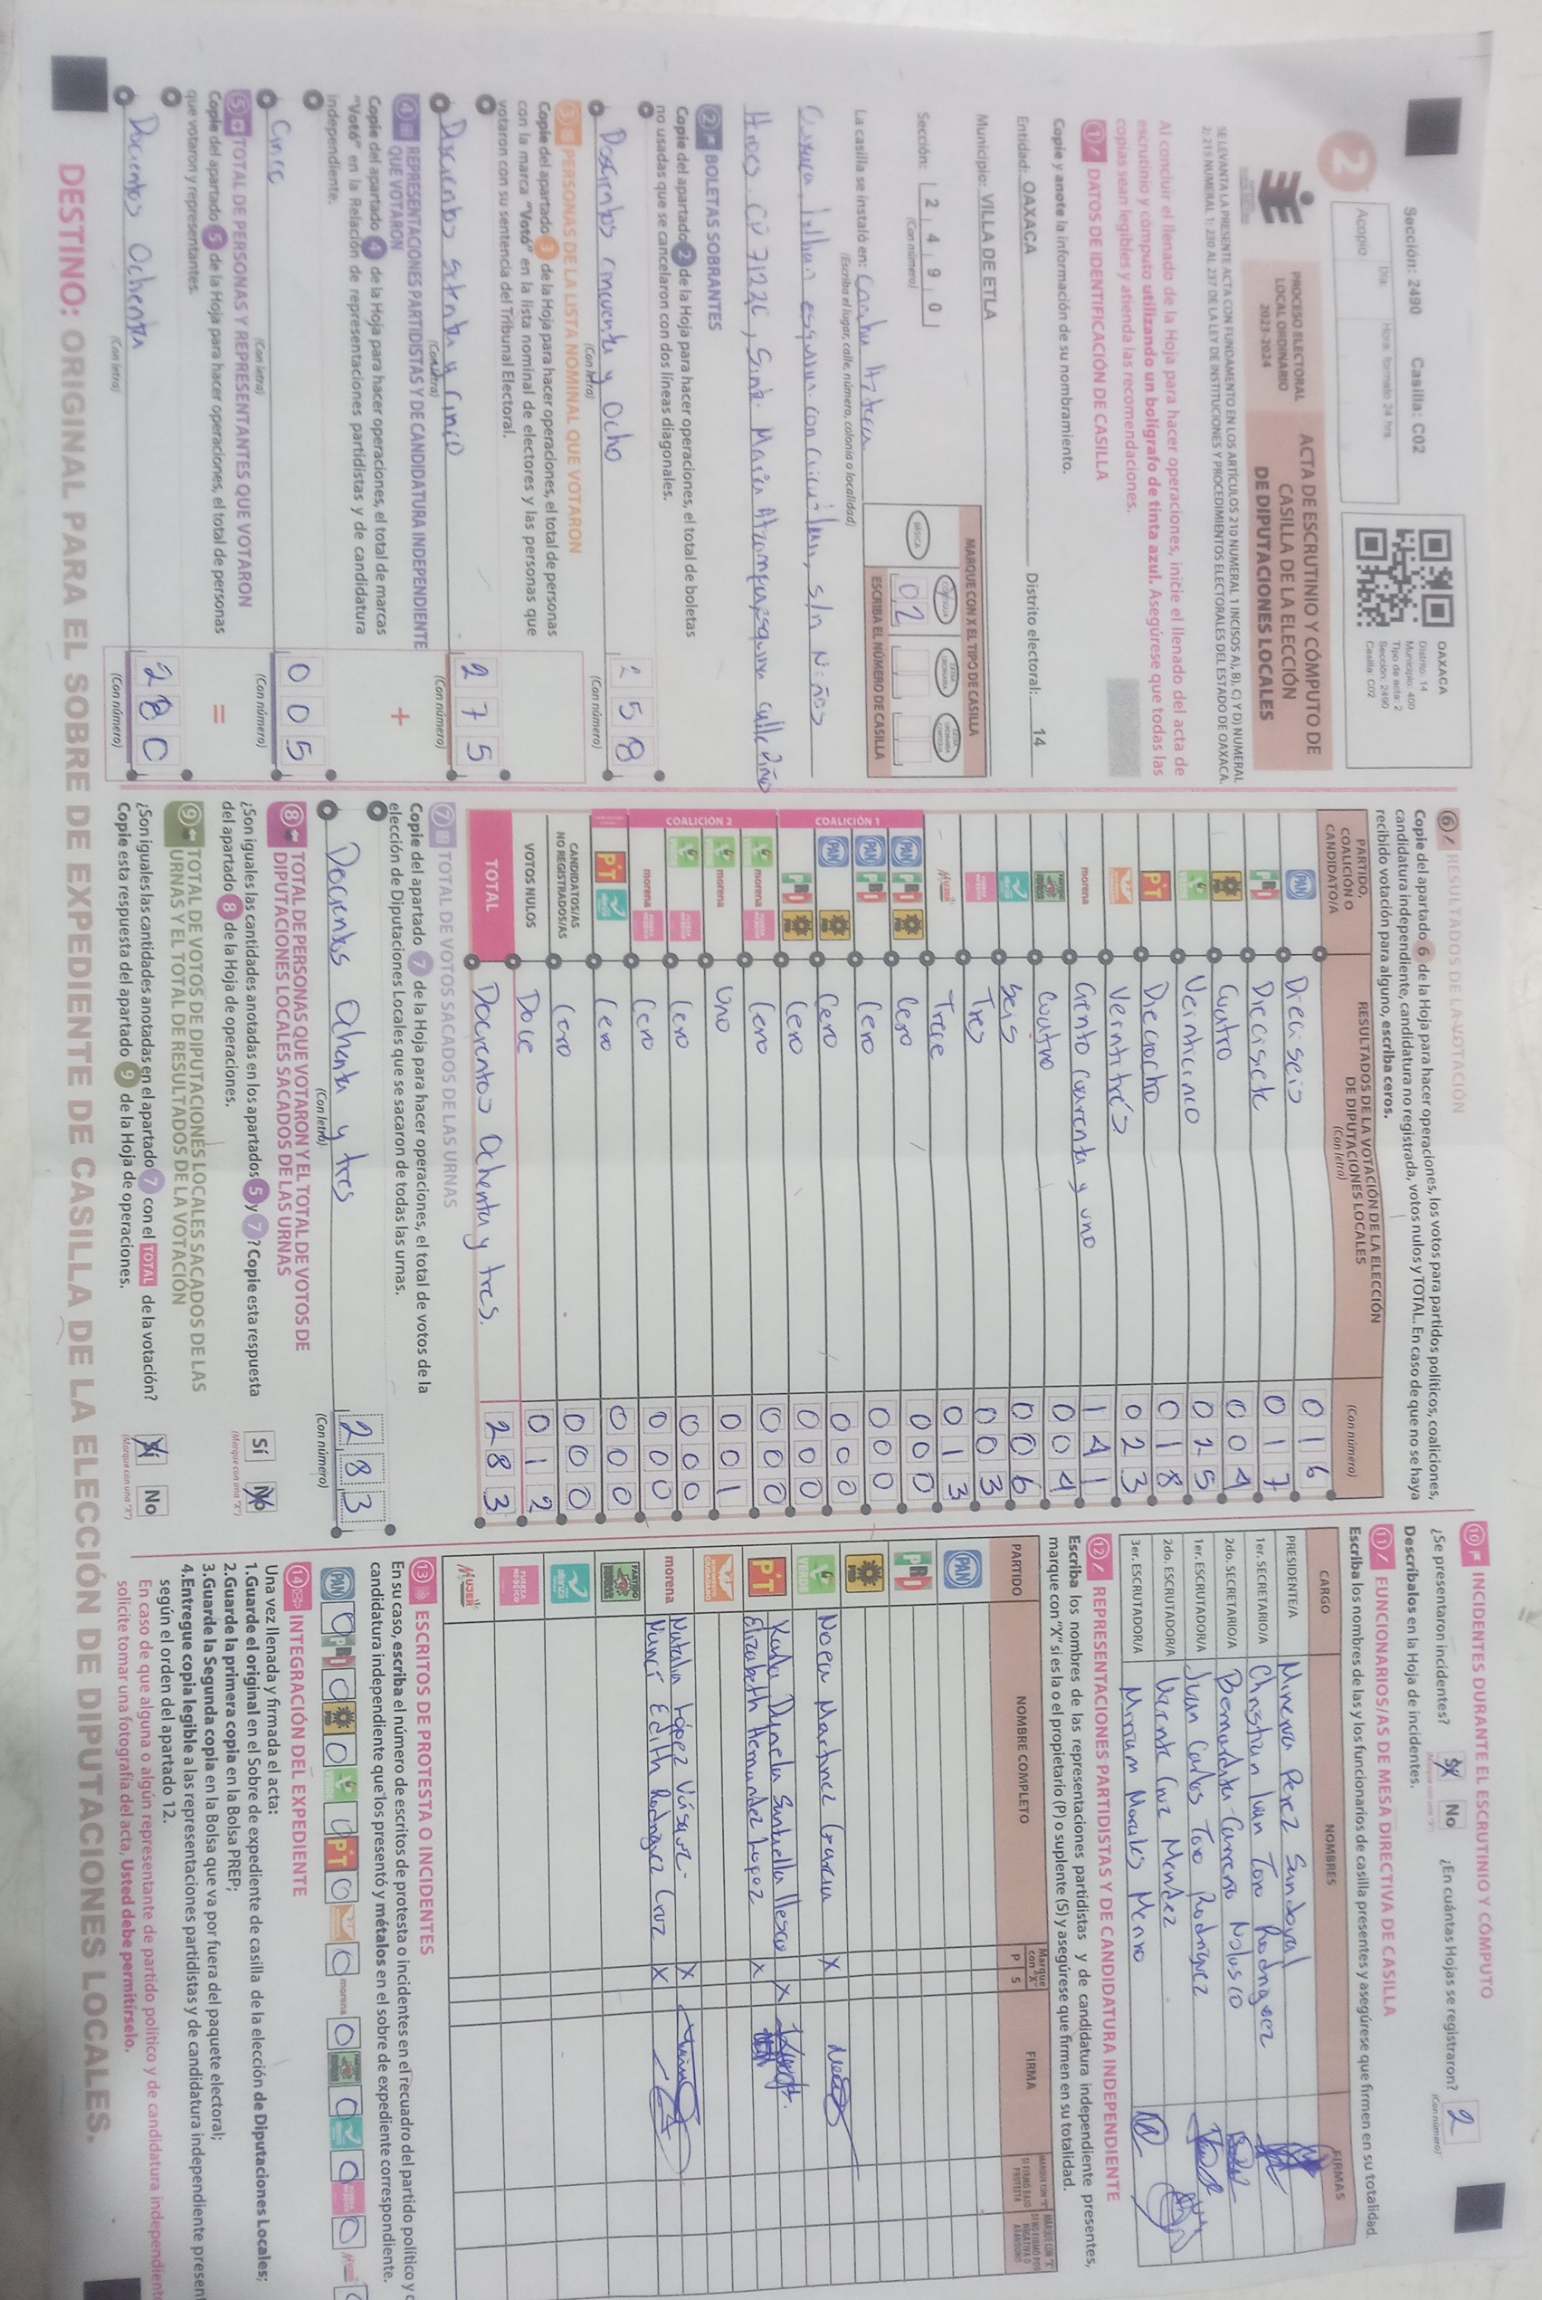 Sección: 2490 Casilla: C02
Día:
Hora: formato 24 hrs.
Acopio
2
OAXACA
Distrito: 14
Municipio: 400
Tipo de acta: 2
Sección: 2490
Casilla: C02
PROCESO ELECTORAL
LOCAL ORDINARIO
2023-2024
ACTA DE ESCRUTINIO Y CÓMPUTO DE
CASILLA DE LA ELECCIÓN
DE DIPUTACIONES LOCALES
SE LEVANTA LA PRESENTE ACTA CON FUNDAMENTO EN LOS ARTÍCULOS 210 NUMERAL 1 INCISOS A), B), C) Y D) NUMERAL
2; 215 NUMERAL 1; 230 AL 237 DE LA LEY DE INSTITUCIONES Y PROCEDIMIENTOS ELECTORALES DEL ESTADO DE OAXACA.
Al concluir el llenado de la Hoja para hacer operaciones, inicie el llenado del acta de
escrutinio y cómputo utilizando un bolígrafo de tinta azul. Asegúrese que todas las
copias sean legibles y atienda las recomendaciones.
1 DATOS DE IDENTIFICACIÓN DE CASILLA
Copie y anote la información de su nombramiento.
Entidad: OAXACA Distrito electoral: 14
Municipio: VILLA DE ETLA
Sección: 2 4 9 0
(Con número)
MARQUE CON X EL TIPO DE CASILLA
BÁSICA
ESCRIBA EL NÚMERO DE CASILLA
02
La casilla se instaló en:
(Escriba el lugar, calle, número, colonia o localidad)
esquina con s/n Niños
Heroes. CP 71226, Santa María Atzompa, esquina calle
2 BOLETAS SOBRANTES
Copie del apartado 2 de la Hoja para hacer operaciones, el total de boletas
no usadas que se cancelaron con dos líneas diagonales.
Doscientos cincuenta y Ocho 258
(Con letra) (Con número)
3 PERSONAS DE LA LISTA NOMINAL QUE VOTARON
Copie del apartado 3 de la Hoja para hacer operaciones, el total de personas
con la marca "Votó" en la lista nominal de electores y las personas que
votaron con su sentencia del Tribunal Electoral.
Doscientos setenta y Cinco 275
(Con letra) (Con número)
4 REPRESENTACIONES PARTIDISTAS Y DE CANDIDATURA INDEPENDIENTE
QUE VOTARON
+
Copie del apartado 4 de la Hoja para hacer operaciones, el total de marcas
"Votó" en la Relación de representaciones partidistas y de candidatura
independiente.
Cinco 005
(Con letra) (Con número)
5 TOTAL DE PERSONAS Y REPRESENTANTES QUE VOTARON
=
Copie del apartado 5 de la Hoja para hacer operaciones, el total de personas
que votaron y representantes.
Docientos Ochenta 280
(Con letra) (Con número)
6 RESULTADOS DE LA VOTACIÓN
Copie del apartado 6 de la Hoja para hacer operaciones, los votos para partidos políticos, coaliciones,
candidatura independiente, candidatura no registrada, votos nulos y TOTAL. En caso de que no se haya
recibido votación para alguno, escriba ceros.
PARTIDO,
COALICIÓN O
CANDIDATO/A
RESULTADOS DE LA VOTACIÓN DE LA ELECCIÓN
DE DIPUTACIONES LOCALES
(Con letra)
(Con número)
PAN Dieciseis 016
PRI Diecisiete 017
PRD Cuatro 004
VERDE Veinticinco 025
PT Dieciocho 018
Veintitrés 023
morena Ciento Cuarenta y uno 141
Cuatro 004
Seis 006
Tres 003
MUJER Trece 013
COALICIÓN 1
PAN PRI PRD Cero 000
PAN PRI Cero 000
PAN PRD Cero 000
PRI PRD Cero 000
COALICIÓN 2
morena Cero 000
morena Uno 001
Cero 000
morena Cero 000
PT Cero 000
CANDIDATOS/AS
NO REGISTRADOS/AS Cero 000
VOTOS NULOS Doce 012
TOTAL Docientos Ochenta y tres. 283
7 TOTAL DE VOTOS SACADOS DE LAS URNAS
Copie del apartado 7 de la Hoja para hacer operaciones, el total de votos de la
elección de Diputaciones Locales que se sacaron de todas las urnas.
Docientos Ochenta y tres 283
(Con letra) (Con número)
8 TOTAL DE PERSONAS QUE VOTARON Y EL TOTAL DE VOTOS DE
DIPUTACIONES LOCALES SACADOS DE LAS URNAS
¿Son iguales las cantidades anotadas en los apartados 5 y 7? Copie esta respuesta
del apartado 8 de la Hoja de operaciones.
Sí No
(Marque con una "X")
9 TOTAL DE VOTOS DE DIPUTACIONES LOCALES SACADOS DE LAS
URNAS Y EL TOTAL DE RESULTADOS DE LA VOTACIÓN
¿Son iguales las cantidades anotadas en el apartado 7 con el TOTAL de la votación?
Copie esta respuesta del apartado 9 de la Hoja de operaciones.
Sí No
(Marque con una "X")
10 INCIDENTES DURANTE EL ESCRUTINIO Y CÓMPUTO
¿Se presentaron incidentes? Sí No ¿En cuántas Hojas se registraron? 2
(Con número)
Descríbalos en la Hoja de incidentes.
11 FUNCIONARIOS/AS DE MESA DIRECTIVA DE CASILLA
Escriba los nombres de las y los funcionarios de casilla presentes y asegúrese que firmen en su totalidad.
CARGO NOMBRES FIRMAS
PRESIDENTE/A Minerva Perez Sandoval
1er. SECRETARIO/A Christian Ivan Toro Rodriguez
2do. SECRETARIO/A Bernardita Carreño Nolasco
1er. ESCRUTADOR/A Juan Carlos Toro Rodriguez
2do. ESCRUTADOR/A Vicente Cruz Mendez
3er. ESCRUTADOR/A Miriam Morales Merino
12 REPRESENTACIONES PARTIDISTAS Y DE CANDIDATURA INDEPENDIENTE
Escriba los nombres de las representaciones partidistas y de candidatura independiente presentes,
marque con "X" si es la o el propietario (P) o suplente (S) y asegúrese que firmen en su totalidad.
PARTIDO NOMBRE COMPLETO Marque con "X" P S FIRMA
PAN
PRI
PRD
VERDE Noeu Martinez Garcia X
PT Karla Daniela Santaella Illescas X
Elizabeth Hernandez Lopez X
morena Natalia López Vásquez X
Nanci Edith Rodriguez Cruz X
MUJER
13 ESCRITOS DE PROTESTA O INCIDENTES
En su caso, escriba el número de escritos de protesta o incidentes en el recuadro del partido político y
candidatura independiente que los presentó y métalos en el sobre de expediente correspondiente.
PAN 0 PRI 0 PRD 0 VERDE 0 PT 0 0 morena 0 0 0 0 MUJER
14 INTEGRACIÓN DEL EXPEDIENTE
Una vez llenada y firmada el acta:
1. Guarde el original en el Sobre de expediente de casilla de la elección de Diputaciones Locales;
2. Guarde la primera copia en la Bolsa PREP;
3. Guarde la Segunda copia en la Bolsa que va por fuera del paquete electoral;
4. Entregue copia legible a las representaciones partidistas y de candidatura independiente presen
según el orden del apartado 12.
En caso de que alguna o algún representante de partido político y de candidatura independient
solicite tomar una fotografía del acta, Usted debe permitírselo.
DESTINO: ORIGINAL PARA EL SOBRE DE EXPEDIENTE DE CASILLA DE LA ELECCIÓN DE DIPUTACIONES LOCALES.